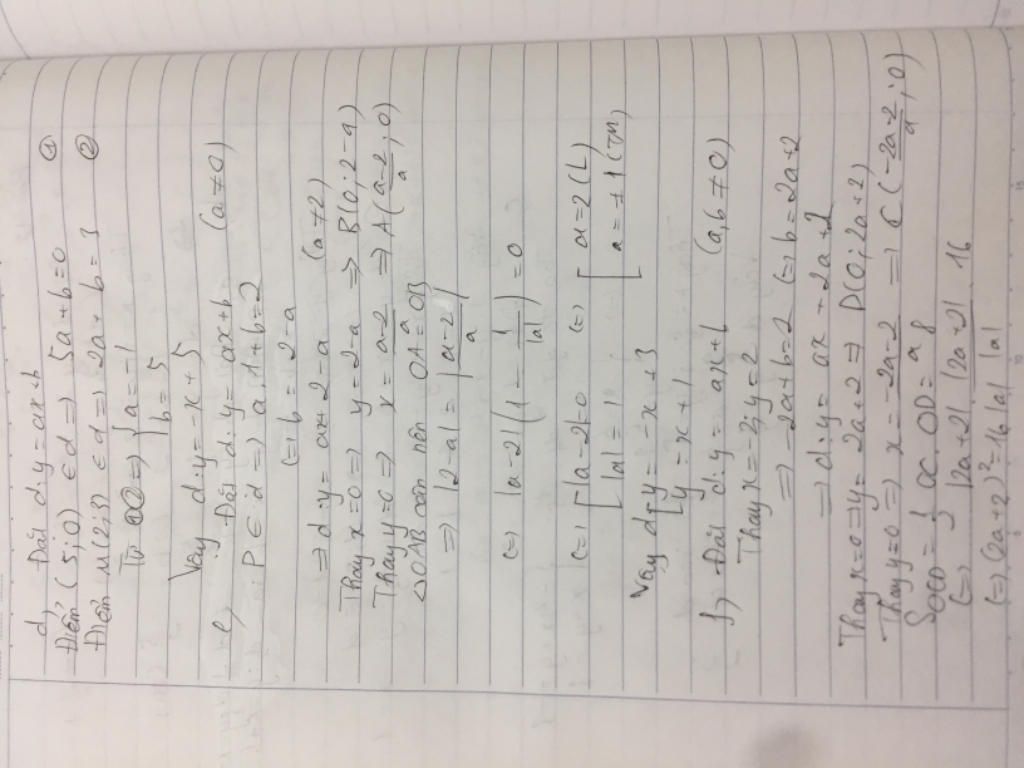 d, Đặt d: y = ax+b
Điểm (5; 0) ∈ d => 5a + b = 0 ①
Điểm M(2; 3) ∈ d => 2a + b = 3 ②
Từ ①② => { a = -1
b = 5
Vậy d: y = -x + 5
e, Đặt d: y = ax+b (a ≠ 0)
P ∈ d => a.1+b=2
<=> b = 2-a
=> d: y = ax + 2 - a (a ≠ 2)
Thay x = 0 => y = 2-a => B(0; 2-a)
Thay y = 0 => x = a-2/a => A(a-2/a; 0)
△OAB cân nên OA = OB
=> |2-a| = |a-2/a|
<=> |a-2|(1 - 1/|a|) = 0
<=> [ |a-2| = 0 <=> [ a = 2 (L)
|a| = 1 a = ±1 (TM)
Vậy d [ y = -x + 3
y = x + 1
f, Đặt d: y = ax+b (a, b ≠ 0)
Thay x = -2; y = 2
=> -2a+b=2 <=> b = 2a+2
=> d: y = ax + 2a + 2
Thay x=0 => y = 2a+2 => D(0; 2a+2)
Thay y=0 => x = -2a-2/a => C(-2a-2/a; 0)
SOCD = 1/2 OC. OD = 8
<=> |2a+2| . |2a+2|/|a| = 16
<=> (2a+2)² = 16|a|